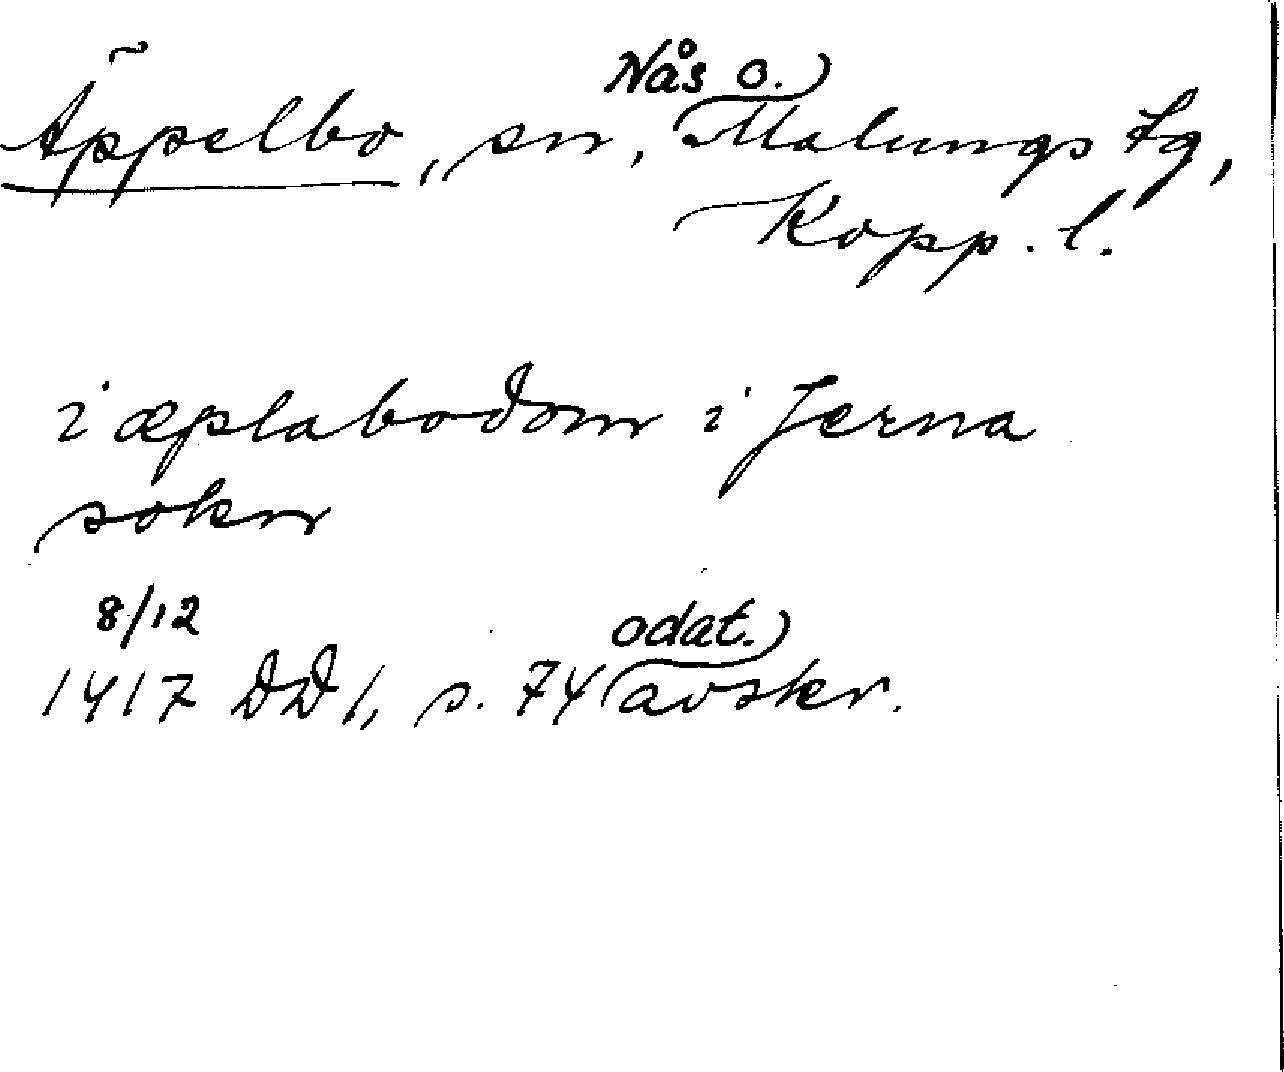 Nås o.)
Äppelbo, sn, Malungs tg,
Kopp. l.
i æplabodom i Jerna
sokn
8/12
odat.)
1417 DD 1, s. 74 avskr.